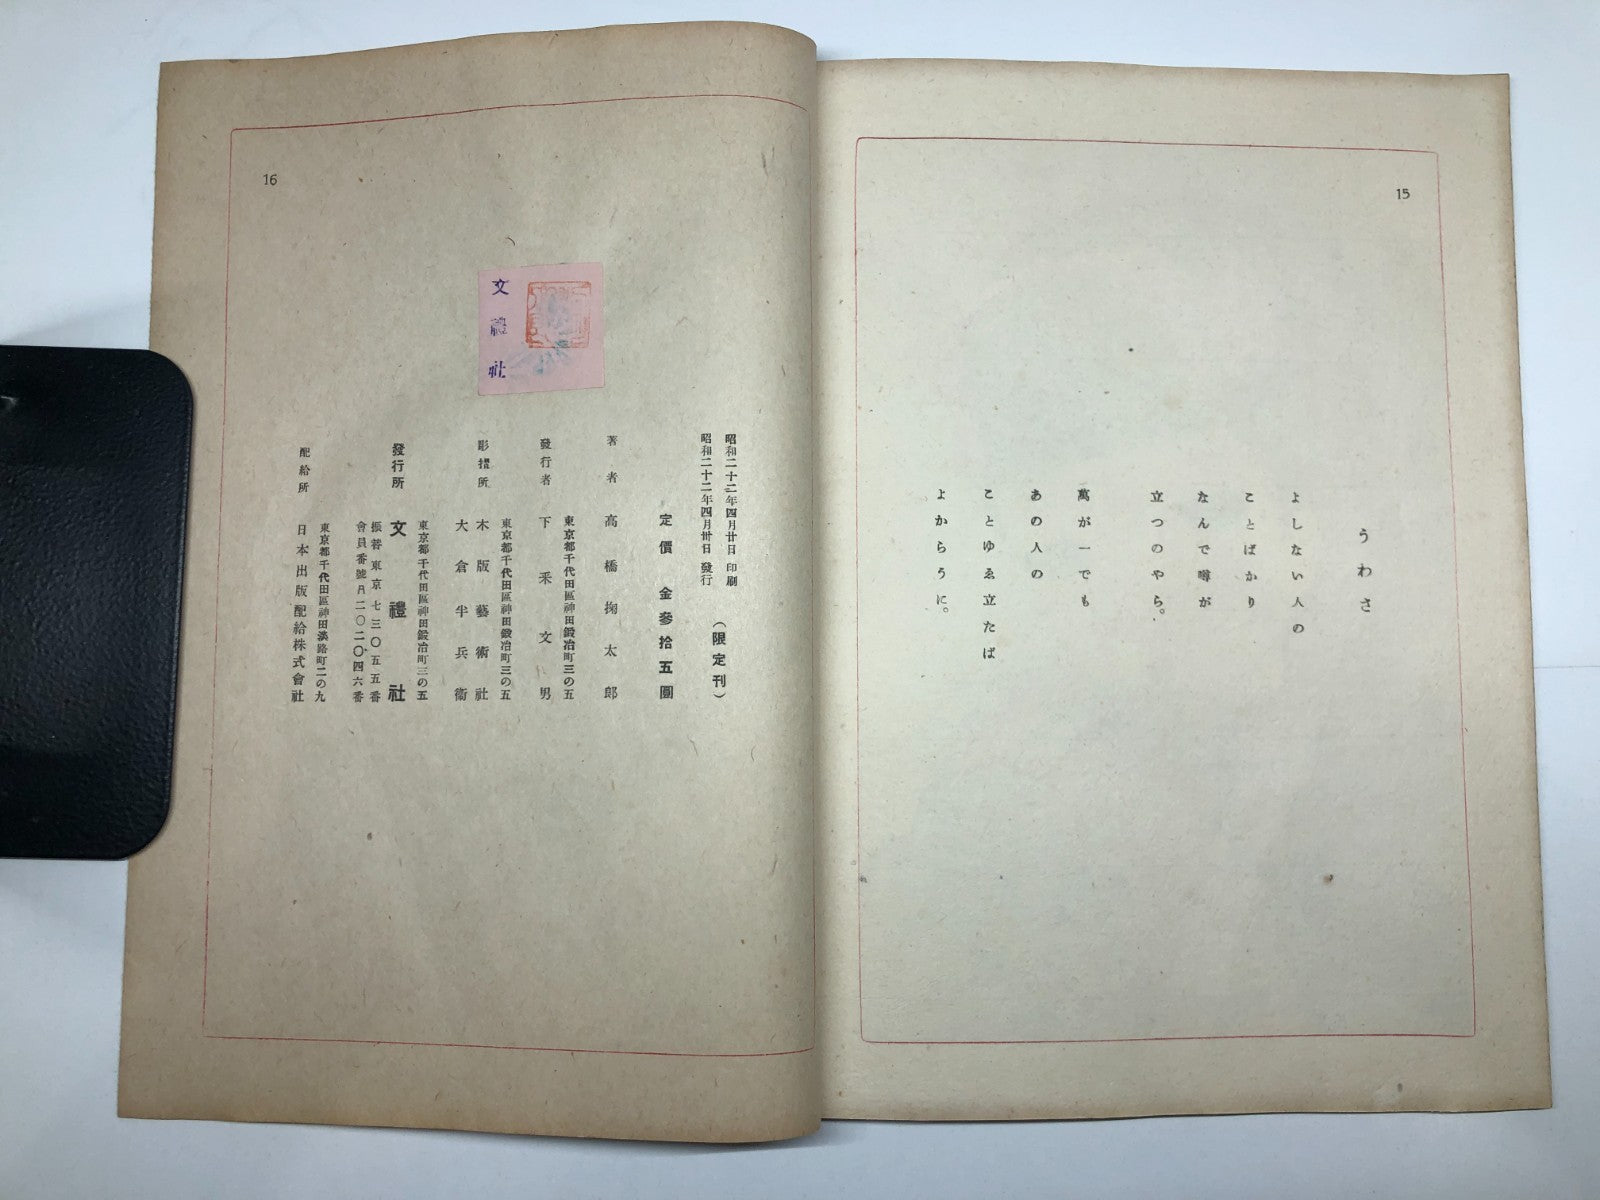 15
うわさ
よしない人の
ことばかり
なんで噂が
立つのやら。
萬が一でも
あの人の
ことゆゑ立たば
よからうに。
16
文禮社
昭和二十二年四月廿日 印刷
昭和二十二年四月卅日 發行
（限定刊）
定價 金參拾五圓
著者 高橋掬太郎
東京都千代田區神田鍛冶町三の五
發行者 下釆文男
東京都千代田區神田鍛冶町三の五
彫摺所 木版藝術社
大倉半兵衞
東京都千代田區神田鍛冶町三の五
發行所 文禮社
振替東京七三〇五五番
會員番號月二〇二〇四六番
東京都千代田區神田淡路町二の九
配給所 日本出版配給株式會社